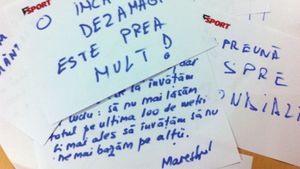 SPORT
O ÎNCĂ
DEZAMĂGI
ESTE PREA
MULT!
SPORT
PREUNĂ
SPRE
de la învățăm
să nu mai lăsăm
totul pe ultima 100 de metri
și mai ales să învățăm să nu
ne mai bazăm pe alții.